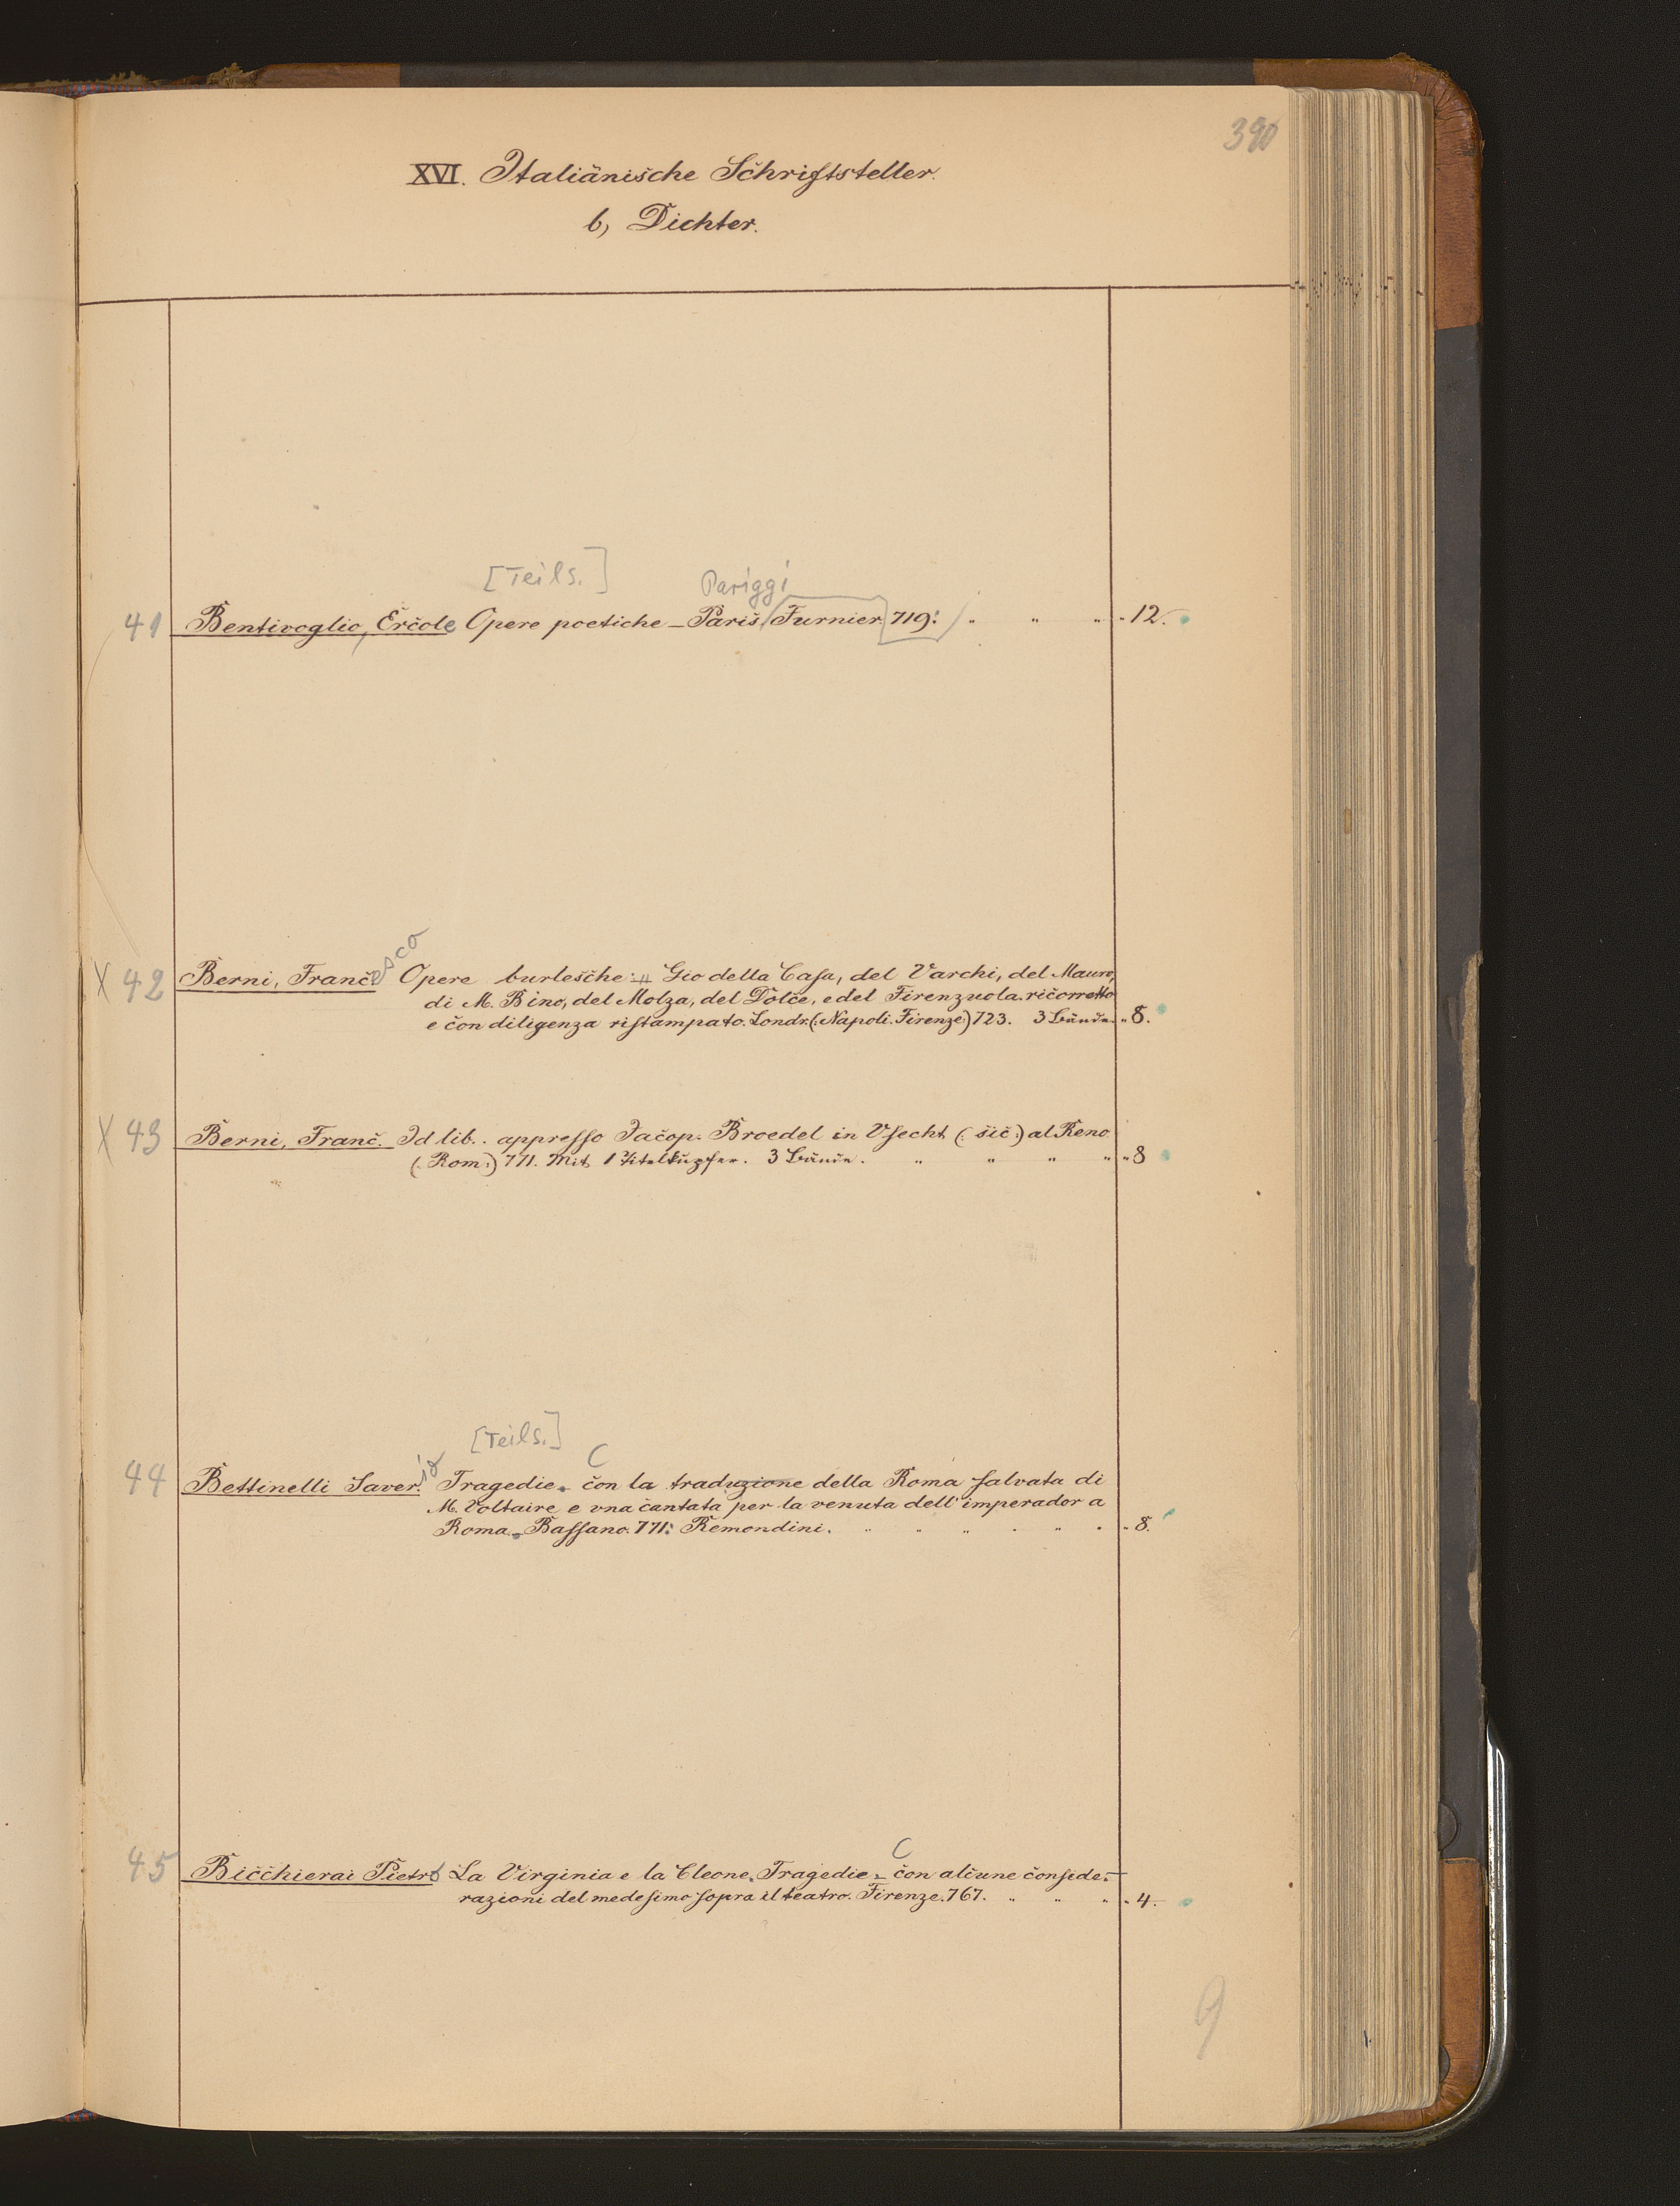 390
XVI. Italiänische Schriftsteller.
b, Dichter.
[Teils.] Pariggi
41 Bentivoglio, Ercole Opere poetiche – Paris, Furnier, 719. " " " " 12.
X 42 Berni, Francesco Opere burlesche: Gio della Casa, del Varchi, del Mauro,
di M. Bino, del Molza, del Dolce, e del Firenzuola. ricorretto
e con diligenza ristampato. Londr. (: Napoli. Firenze:) 723. 3 Bände. " 8.
X 43 Berni, Franc. Id lib. appresso Jacop. Broedel in Vsecht (: sic:) al Reno
(: Rom:) 771. Mit 1 Titelkupfer. 3 Bände. " " " " " 8
[Teils.] C
44 Bettinelli Saverio Tragedie. con la traduzione della Roma salvata di
M. Voltaire e vna cantata per la venuta dell' imperador a
Roma. Bassano. 771. Remondini. " " " " " " " 8.
C
45 Bicchierai Pietro La Virginia e la Cleone, Tragedie. con alcune conside-
razioni del medesimo sopra il teatro. Firenze. 767. " " " " 4.
9